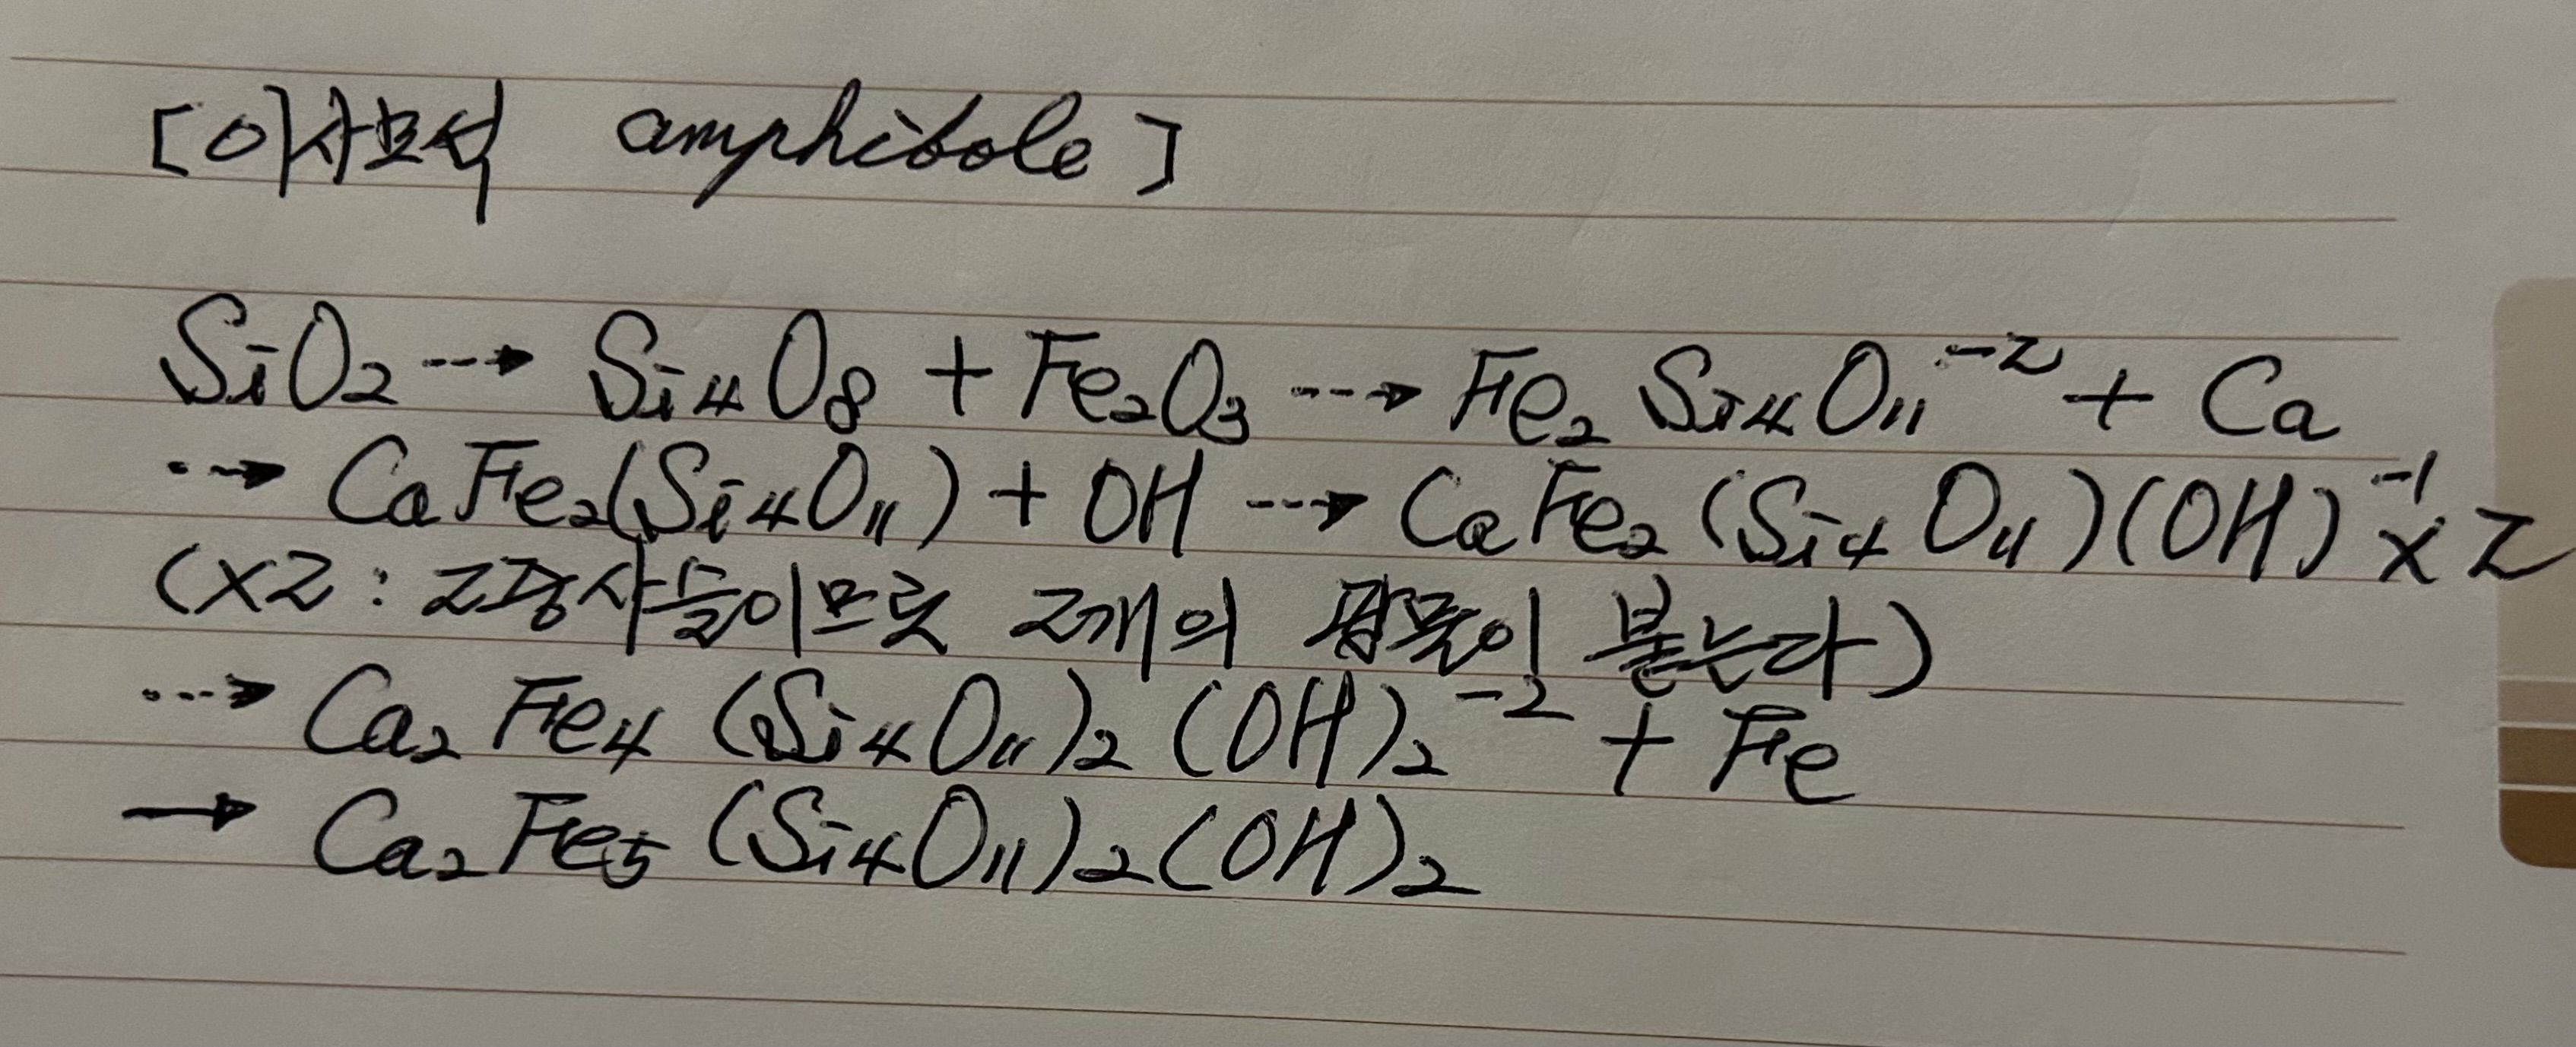 [이사모석 amphibole]
SiO₂ ⇢ Si₄O₈ + Fe₂O₃ ⇢ Fe₂Si₄O₁₁⁻² + Ca
⇢ CaFe₂(Si₄O₁₁) + OH ⇢ CaFe₂(Si₄O₁₁)(OH)⁻¹ x2
(x2 : 2중사슬이므로 2개의 붙는다)
⇢ Ca₂Fe₄(Si₄O₁₁)₂(OH)₂⁻² + Fe
→ Ca₂Fe₅(Si₄O₁₁)₂(OH)₂